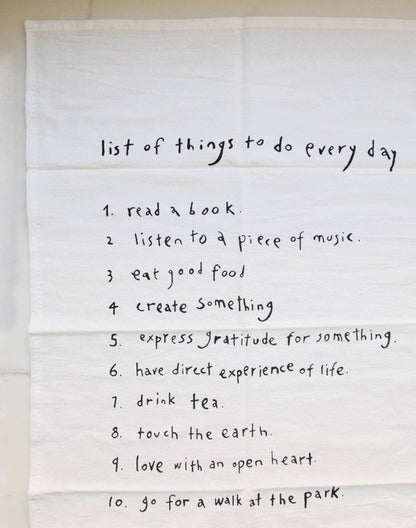 list of things to do every day
1. read a book.
2 listen to a piece of music.
3 eat good food
4 create something
5. express gratitude for something.
6. have direct experience of life.
7. drink tea.
8. touch the earth.
9. love with an open heart.
10. go for a walk at the park.